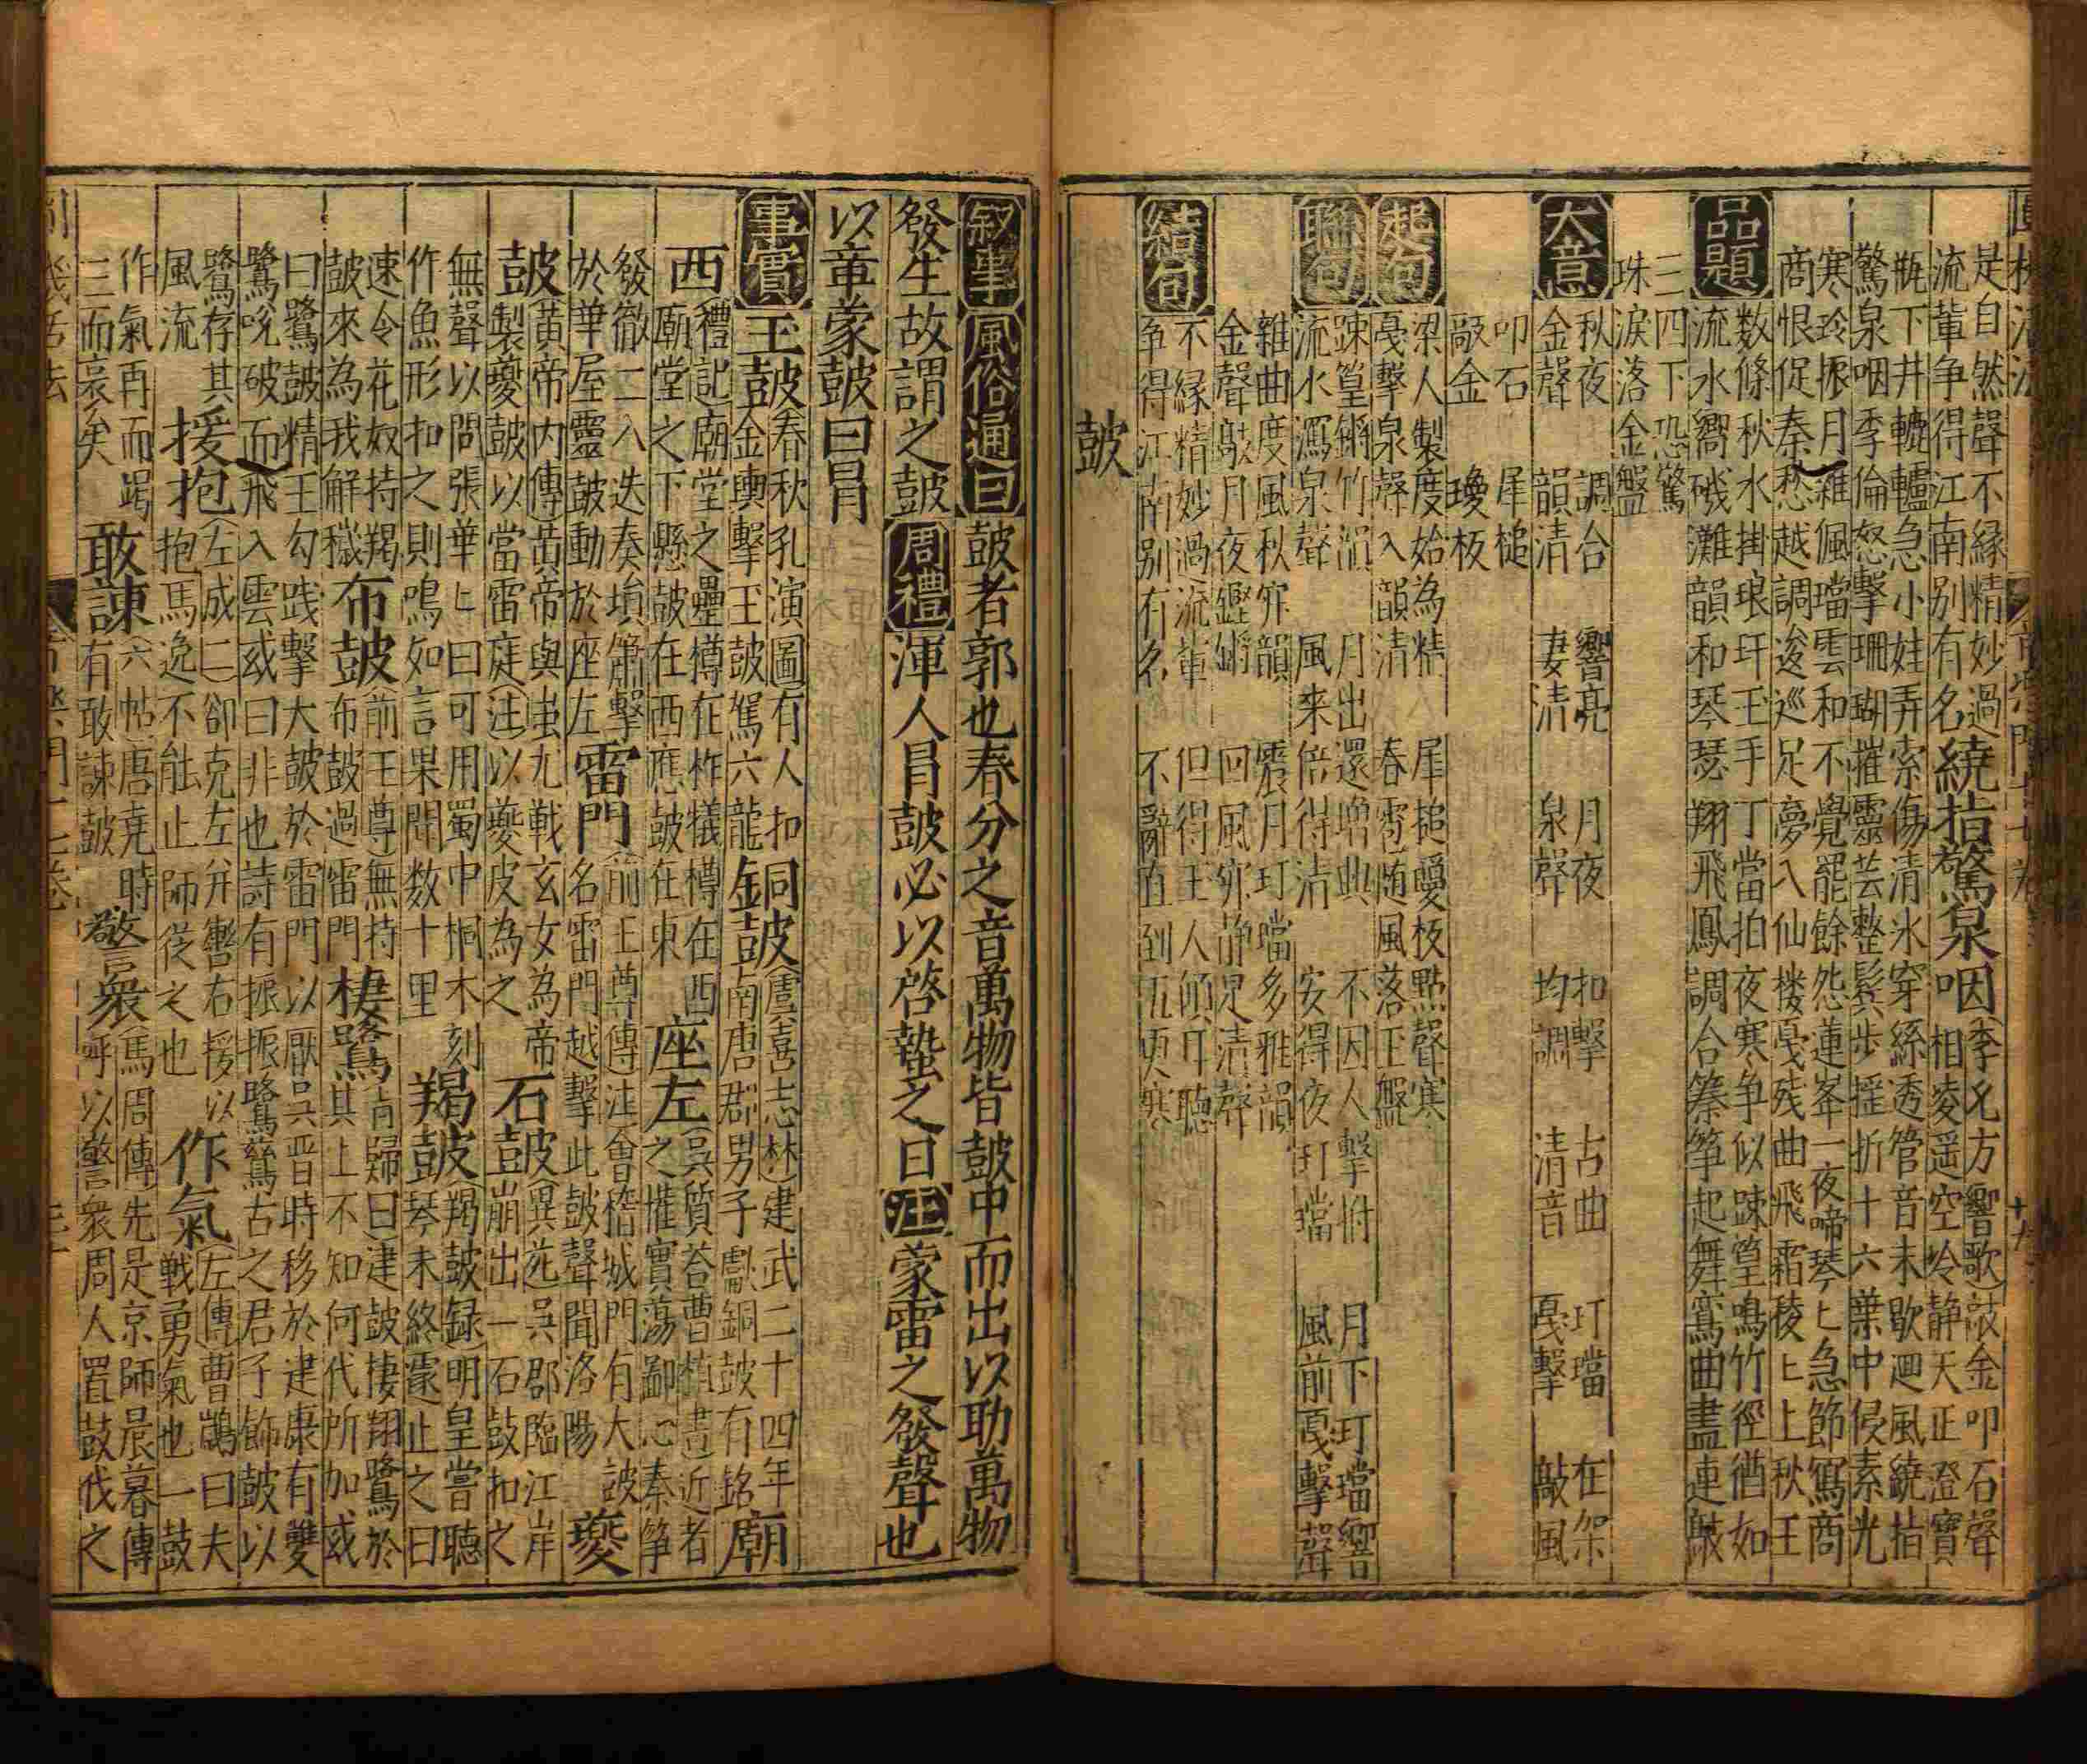 是自然聲不緣精妙過
流輩争得江南別有名
繞指驚泉咽
李允方響歌敲金叩石聲
相凌遥空冷静天正澄寶
瓶下井轆轤急小娃弄索傷清氷穿絲透管音未歇迴風繞指
驚泉咽季倫怒擊珊瑚摧靈芸整鬂步摇折十六葉中侵素光
寒玲振月雜佩璫雲和不覺罷餘怨蓮峯一夜啼琴ヒ急節寫商
商恨促秦愁越調逡巡足夢入仙楼戞残曲飛霜稜ヒ上秋王
品題
数條秋水掛琅玕玉手丁當拍夜寒争似踈篁鳴竹徑猶如
流水嚮磯灘韻和琴瑟翔飛鳳調合𥱧筝起舞鸞曲盡連敲
三四下恐驚
珠淚落金盤
大意
秋夜 調合 響亮 月夜 扣擊 古曲 玎璫 在架
金聲 韻清 凄清 泉聲 均調 清音 戞擊 敲風
叩石 犀槌
敲金 瓊板
起句
梁人製度始為精 犀搥瓊板點聲寒
戞擊泉聲入韻清 春雹随風落玉盤
聯句
踈篁鏘竹澗 月出還增典 不因人擊拊 月下玎璫響
流水瀉泉聲 風来倍得清 安得夜玎璫 風前戞擊聲
雜曲度風秋穿韻 震月玎璫多雅韻
金聲敲月夜鏗鏘 回風穿静足清聲
結句
不緣精妙過流輩 但得王人傾耳聽
争得江南別有名 不辭直到五更寒
鼓
叙事 風俗通曰 鼓者郭也春分之音萬物皆鼓中而出以助萬物
發生故謂之鼓 周禮 渾人冐鼓必以啓蟄之日 注 蒙雷之發聲也
以童蒙鼓曰冐
事實 玉鼓
春秋孔演圖有人扣
金輿擊玉鼓駕六龍
銅鼓
虞喜志林建武二十四年
南唐郡男子獻銅鼓有銘
廟
西
禮記廟堂之罍樽在柞犠樽在西
廟堂之下懸鼓在西應鼓在東
座左
吳質荅曹植書近者
之權實蕩鄙心秦筝
發徹二八迭奏塤簫擊
於華屋靈鼓動於座左
雷門
前王尊傳注會稽城門有大鼓
名雷門越擊此鼓聲聞洛陽
夔
鼓
黄帝内傳黄帝與蚩尤戦玄女為帝
製夔鼓以當雷庭注以夔皮為之
石鼓
異苑吳郡臨江岸
崩出一石鼓扣之
無聲以問張華ヒ曰可用蜀中桐木刻
作魚形扣之則鳴如言果聞数十里
羯鼓
羯鼓録明皇嘗聴
琴未終遽止之曰
速令花奴持羯
鼓來為我解穢
布鼓
前王尊無持
布鼓過雷門
棲鷺
肯歸曰建鼓棲翔鷺於
其上不知何代所加或
曰鷺鼓精王勾践擊大鼓於雷門以厭吳晋時移於建康有雙
鷺吮破而飛入雲或曰非也詩有振振鷺鷥古之君子飾鼓以
鷺存其
風流
援抱
左成二卻克左并轡右援以
抱馬逸不能止師従之也
作氣
左傳曹鷁曰夫
戦勇氣也一鼓
作氣再而竭
三而衰矣
敢諫
六帖唐尭時
有敢諫鼓
警衆
馬周傳先是京師晨暮傳
呼以警衆周人置鼓伐之